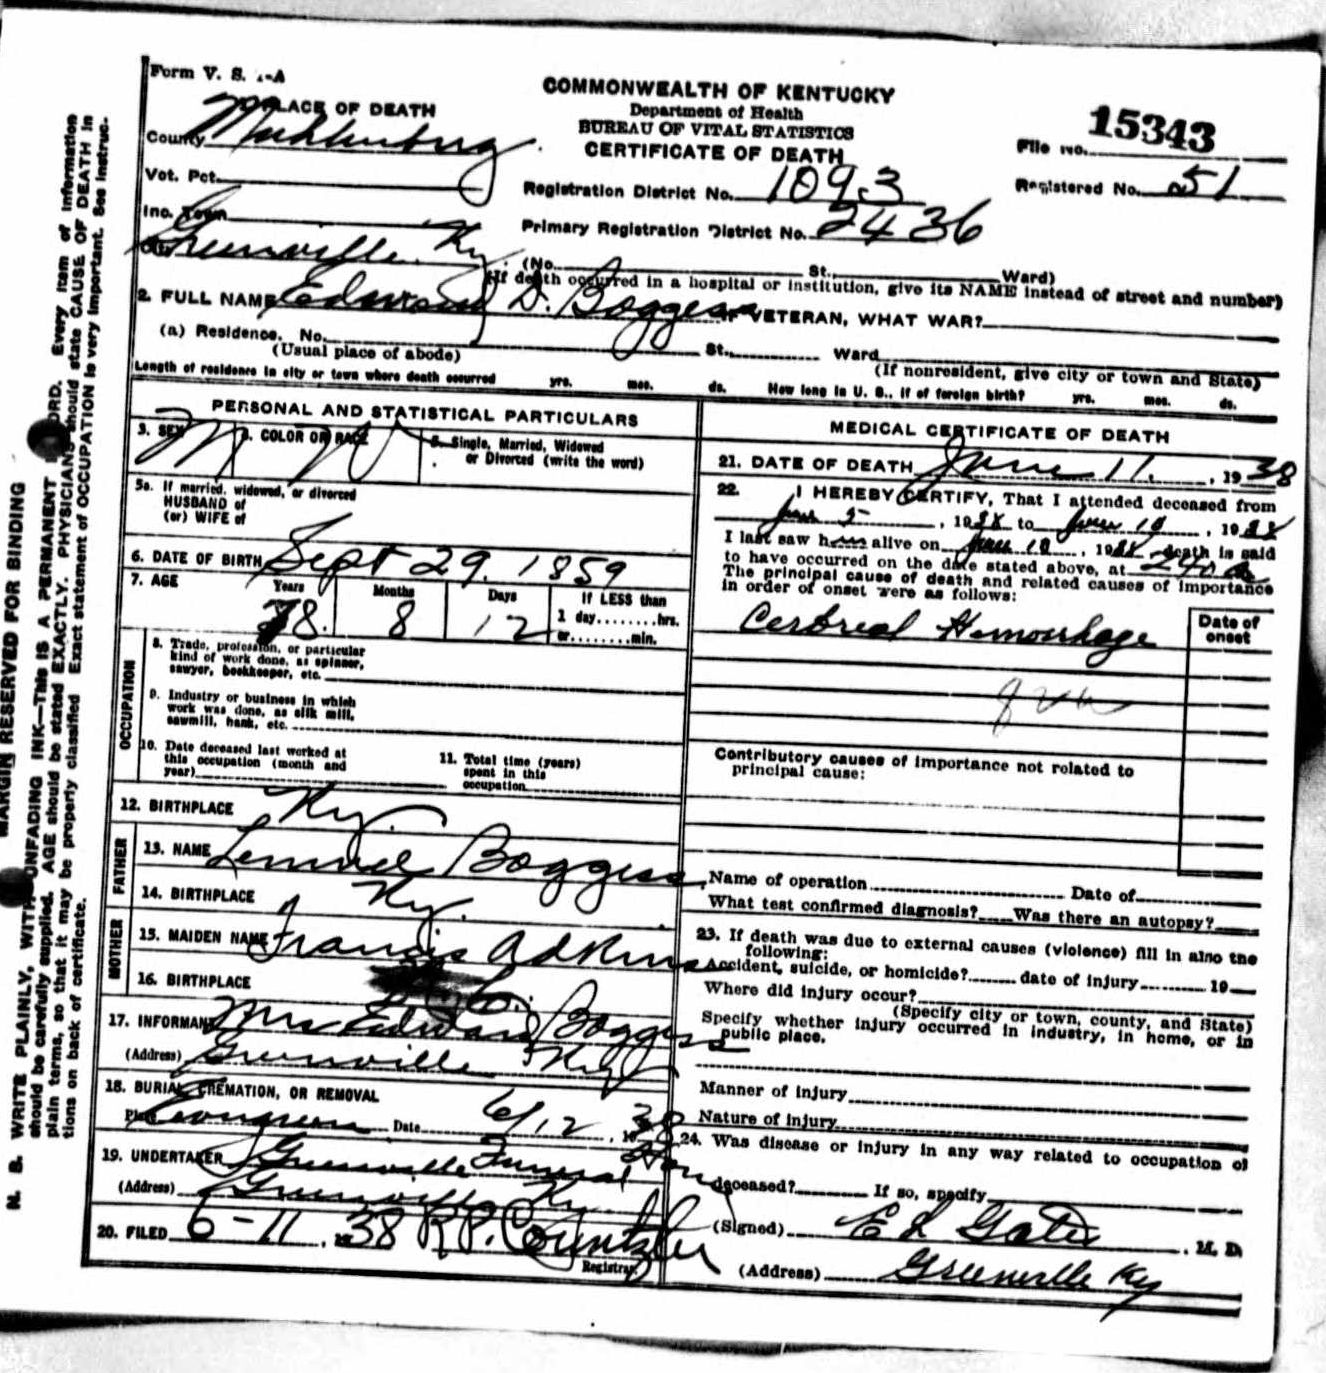 Form V. S. 1-A
COMMONWEALTH OF KENTUCKY
Department of Health
BUREAU OF VITAL STATISTICS
CERTIFICATE OF DEATH
15343
File No.
Registered No. 51
PLACE OF DEATH
County Muhlenburg
Vot. Pct.
Registration District No. 1093
Inc. Town
Primary Registration District No. 2436
Greenville Ky. (No. St., Ward)
(If death occurred in a hospital or institution, give its NAME instead of street and number)
2. FULL NAME Edward D. Boggess IF VETERAN, WHAT WAR?
(a) Residence. No. St., Ward
(Usual place of abode) (If nonresident, give city or town and State)
Length of residence in city or town where death occurred yrs. mos. ds. How long in U. S., if of foreign birth? yrs. mos. ds.
PERSONAL AND STATISTICAL PARTICULARS
3. SEX M 4. COLOR OR RACE W 5. Single, Married, Widowed
or Divorced (write the word)
5a. If married, widowed, or divorced
HUSBAND of
(or) WIFE of
6. DATE OF BIRTH Sept 29. 1859
7. AGE Years Months Days If LESS than
78. 8 12 1 day........hrs.
or........min.
OCCUPATION
8. Trade, profession, or particular
kind of work done, as spinner,
sawyer, bookkeeper, etc.
9. Industry or business in which
work was done, as silk mill,
sawmill, bank, etc.
10. Date deceased last worked at
this occupation (month and
year)
11. Total time (years)
spent in this
occupation
12. BIRTHPLACE Ky.
FATHER
13. NAME Lemuel Boggess
14. BIRTHPLACE Ky.
MOTHER
15. MAIDEN NAME Francis Adkins
16. BIRTHPLACE
17. INFORMANT Mrs Edward Boggess
(Address) Greenville Ky
18. BURIAL, CREMATION, OR REMOVAL
Place Evergreen Date 6/12, 1938
19. UNDERTAKER Greenville Funeral Home
(Address) Greenville Ky.
20. FILED 6-11, 1938 R.P. Countzler
Registrar
MEDICAL CERTIFICATE OF DEATH
21. DATE OF DEATH June 11., 1938
22. I HEREBY CERTIFY, That I attended deceased from
June 5, 1938 to June 10, 1938
I last saw him alive on June 10, 1938 death is said
to have occurred on the date stated above, at 240 a
The principal cause of death and related causes of importance
in order of onset were as follows:
Date of
onset
Cerbreal Hemorrhage
Contributory causes of importance not related to
principal cause:
Name of operation Date of
What test confirmed diagnosis? Was there an autopsy?
23. If death was due to external causes (violence) fill in also the
following:
Accident, suicide, or homicide? date of injury 19
Where did injury occur?
(Specify city or town, county, and State)
Specify whether injury occurred in industry, in home, or in
public place.
Manner of injury
Nature of injury
24. Was disease or injury in any way related to occupation of
deceased? If so, specify
(Signed) E L Gates, M. D.
(Address) Greenville Ky
MARGIN RESERVED FOR BINDING
N. B. WRITE PLAINLY, WITH UNFADING INK—THIS IS A PERMANENT RECORD. Every item of information
should be carefully supplied. AGE should be stated EXACTLY. PHYSICIANS should state CAUSE OF DEATH in
plain terms, so that it may be properly classified. Exact statement of OCCUPATION is very important. See instruc-
tions on back of certificate.